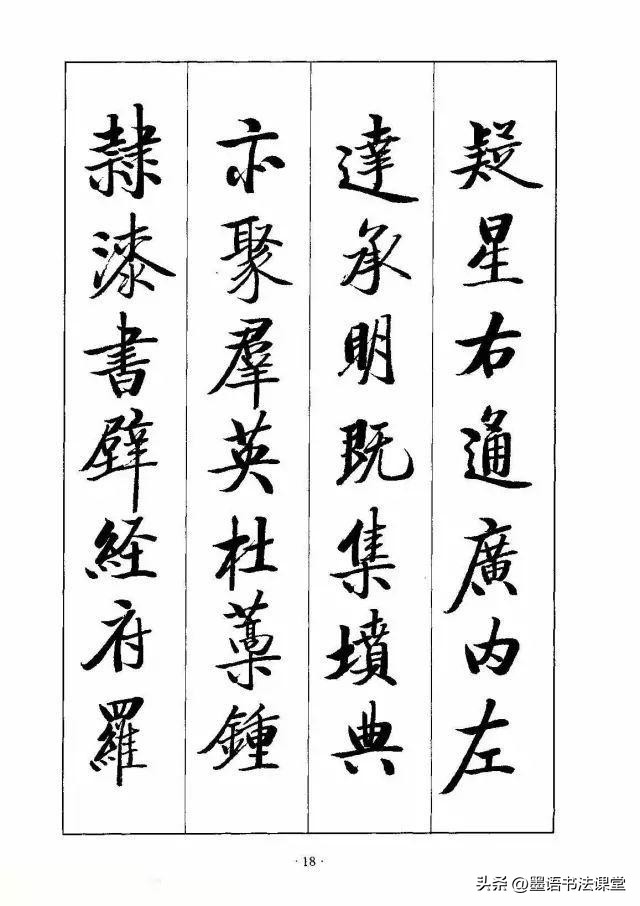 疑星右通廣内左
達承明既集墳典
亦聚羣英杜藁鍾
隸漆書壁経府羅
·18·
头条@墨语书法课堂